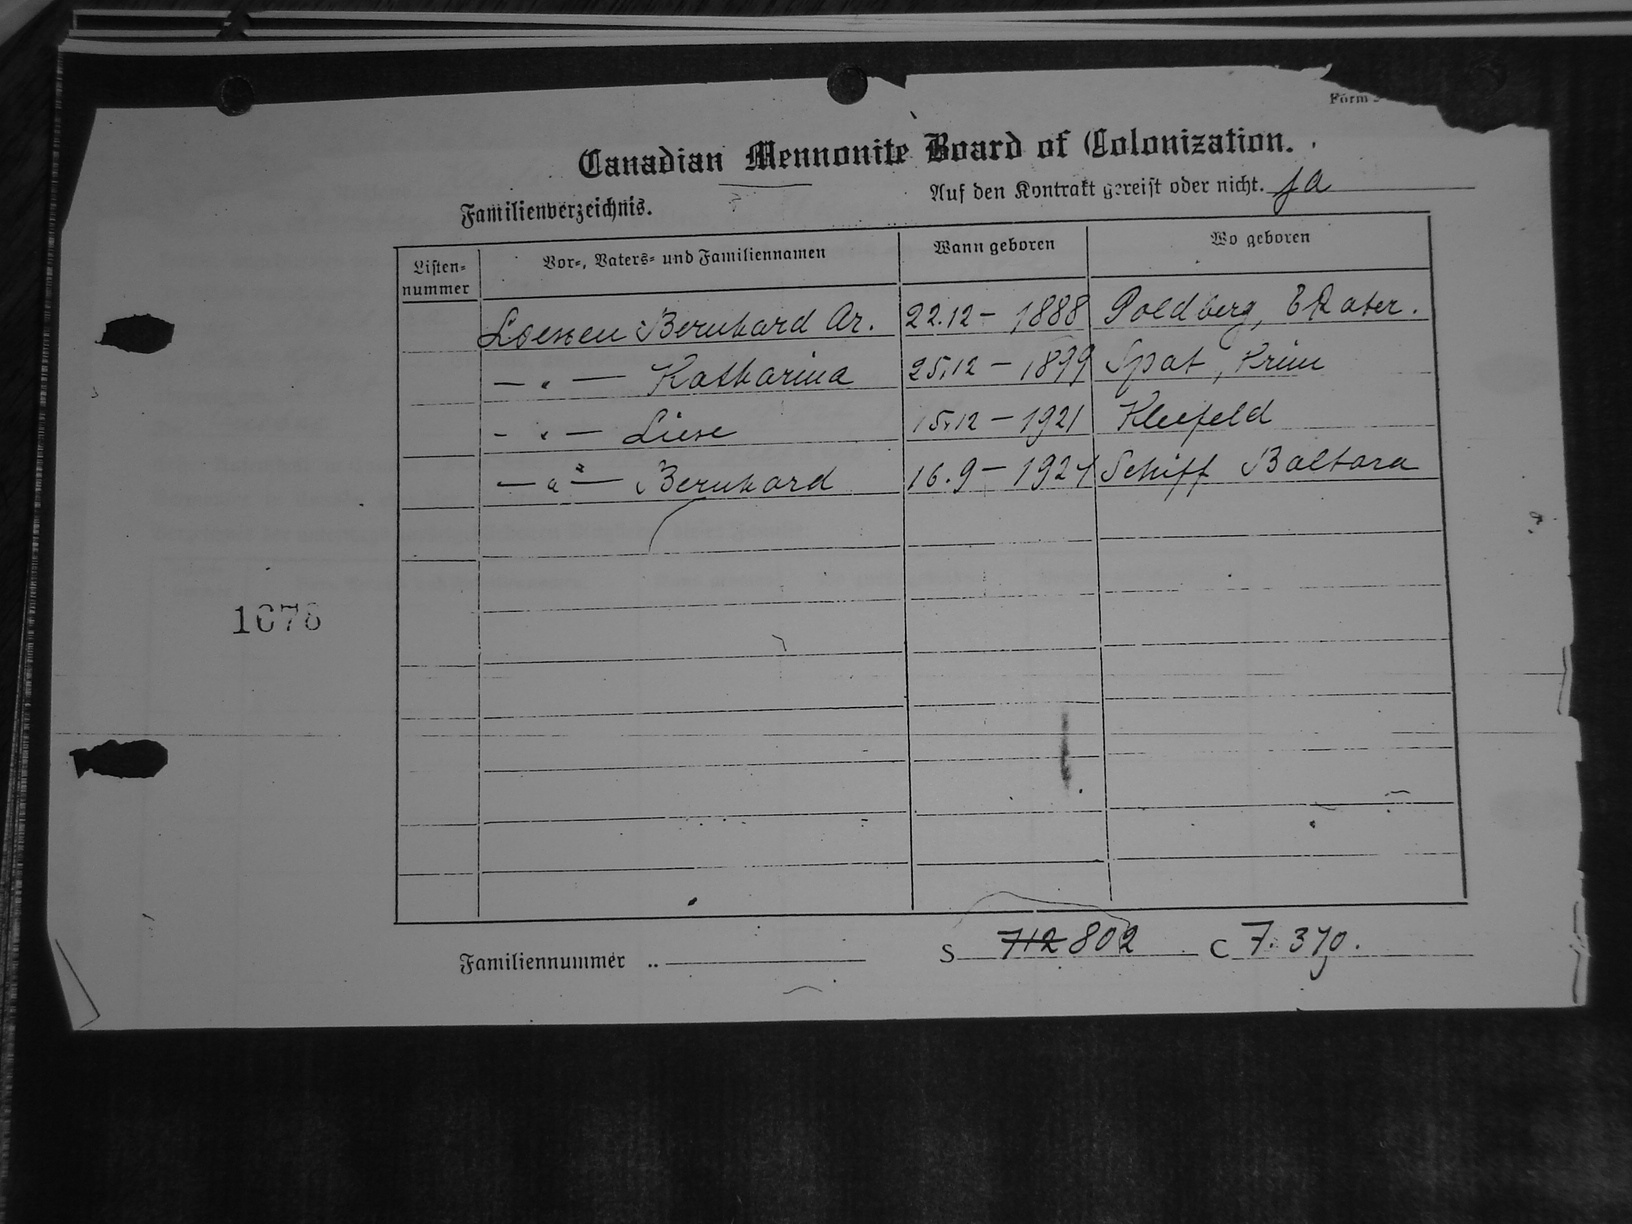 Form
Canadian Mennonite Board of Colonization.
Familienverzeichnis.
Auf den Kontrakt gereist oder nicht. Ja
Listen-nummer
Vor-, Vaters- und Familiennamen
Wann geboren
Wo geboren
Loewen Bernhard Ar. 22.12 - 1888
— " — Katharina 25.12 - 1899 Spat, Krim
- " — Liese 15.12 - 1921 Kleefeld
— " — Bernhard 16.9 - 1924 Schiff Baltara
1076
Familiennummer .. S 712 802 C 7.370.